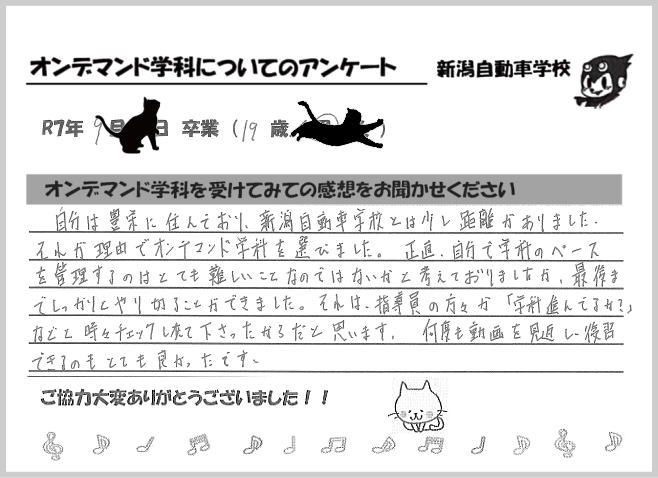 オンデマンド学科についてのアンケート 新潟自動車学校
R7年 9月 日 卒業 (19 歳 )
オンデマンド学科を受けてみての感想をお聞かせください
自分は豊栄に住んでおり、新潟自動車学校とは少し距離がありました。
それが理由でオンデマンド学科を選びました。正直、自分で学科のペース
を管理するのはとても難しいことなのではないかと考えておりましたが、最後ま
でしっかりとやり切ることができました。それは、指導員の方々が「学科進んでるか?」
などと時々チェックし  て下さったからだと思います。何度も動画を見返し復習
できるのもとても良かったです。
ご協力大変ありがとうございました!!